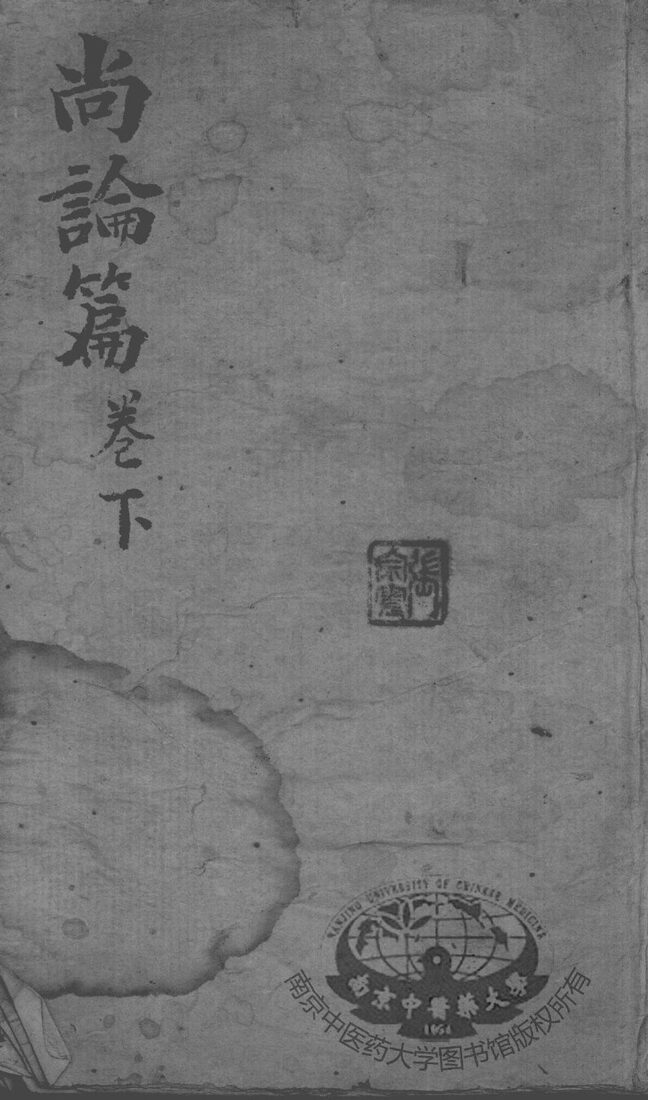 尚論篇
卷下
張
宗瑩
NANJING UNIVERSITY OF CHINESE MEDICINE
南京中醫藥大學
1954
南京中医药大学图书馆版权所有